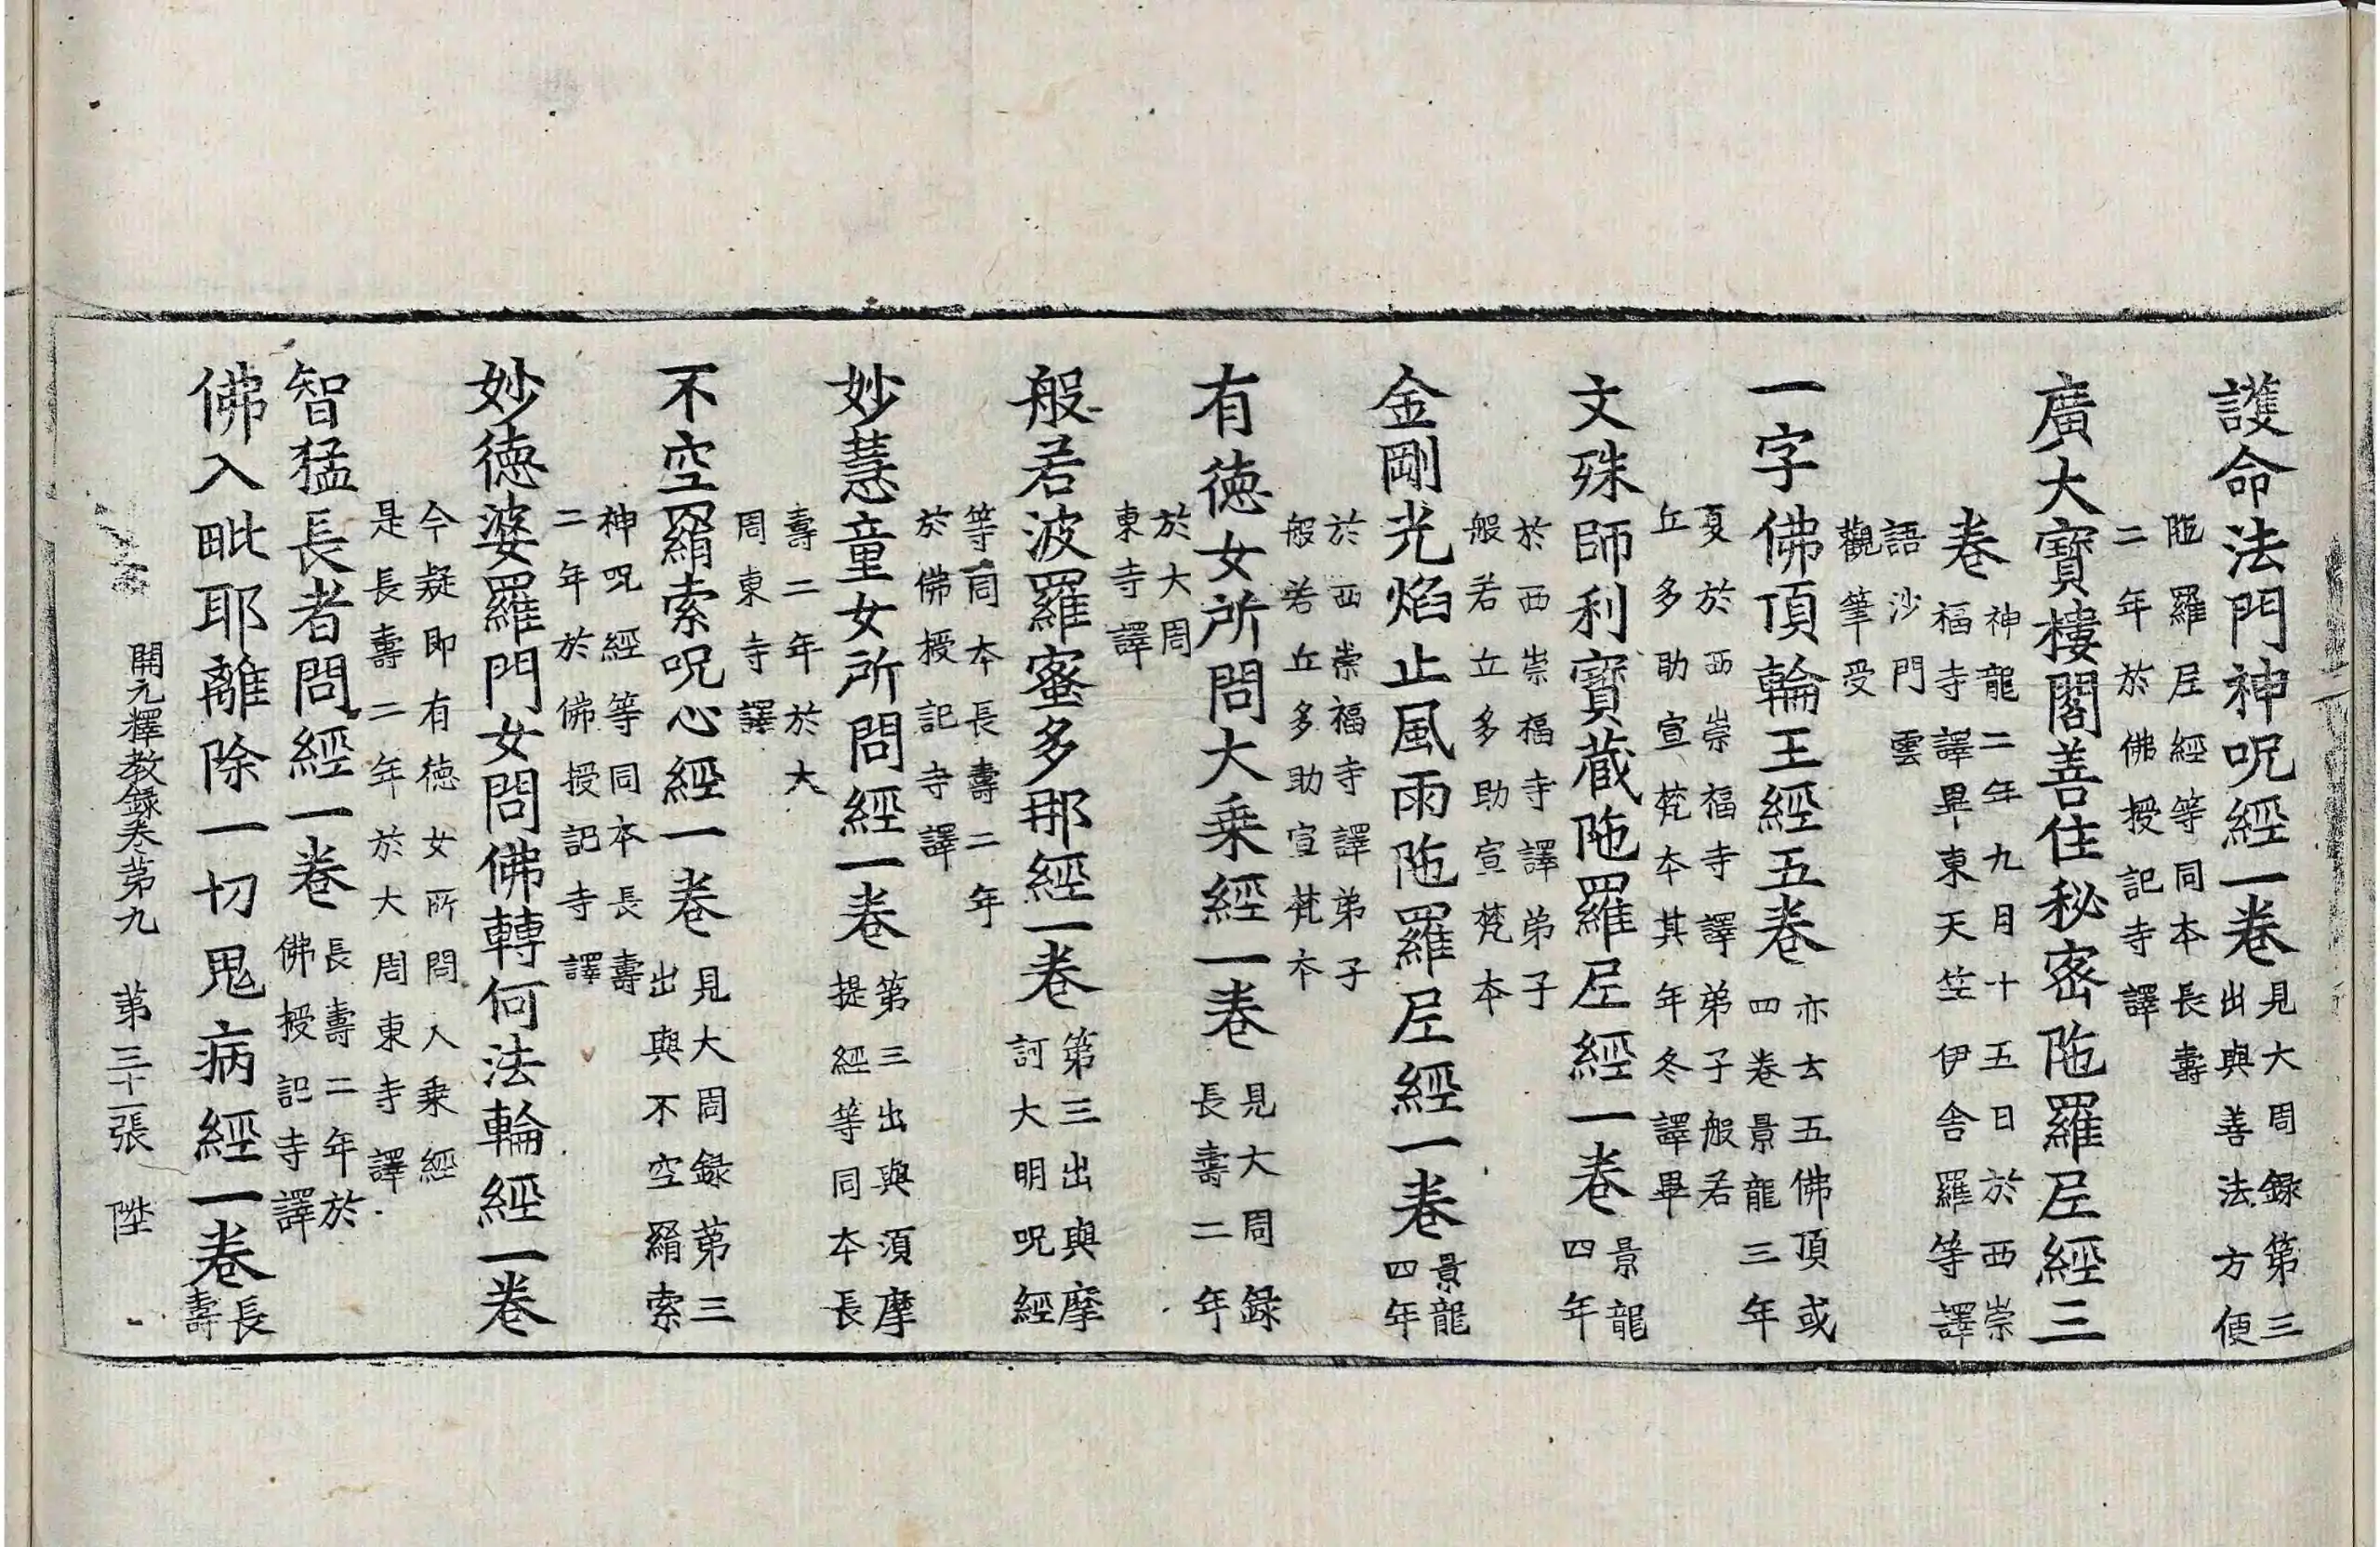 護命法門神呪經一卷見大周録第三出與善法方便
陁羅尼經等同本長壽二年於佛授記寺譯
廣大寳樓閣善住秘密陁羅尼經三
卷神龍二年九月十五日於西崇福寺譯畢東天竺伊舎羅等譯
語沙門雲觀筆受
一字佛頂輪王經五卷亦云五佛頂或四卷景龍三年
夏於西崇福寺譯弟子般若丘多助宣梵本其年冬譯畢
文殊師利寳蔵陁羅尼經一卷景龍四年
於西崇福寺譯弟子般若丘多助宣梵本
金剛光焰止風雨陁羅尼經一卷景龍四年
於西崇福寺譯弟子般若丘多助宣梵本
有徳女所問大乗經一卷見大周録長壽二年
於大周東寺譯
般若波羅蜜多那經一卷第三出與摩訶大明呪經
等同本長壽二年於佛授記寺譯
妙慧童女所問經一卷第三出與湏摩提經等同本長
壽二年於大周東寺譯
不空羂索呪心經一卷見大周録第三出與不空羂索
神呪經等同本長壽二年於佛授記寺譯
妙徳婆羅門女問佛轉何法輪經一卷
今疑即有徳女所問人乗經是長壽二年於大周東寺譯
智猛長者問經一卷長壽二年於佛授記寺譯
佛入毗耶離除一切鬼病經一卷長壽
開元釋教録卷第九 第三十一張 陞